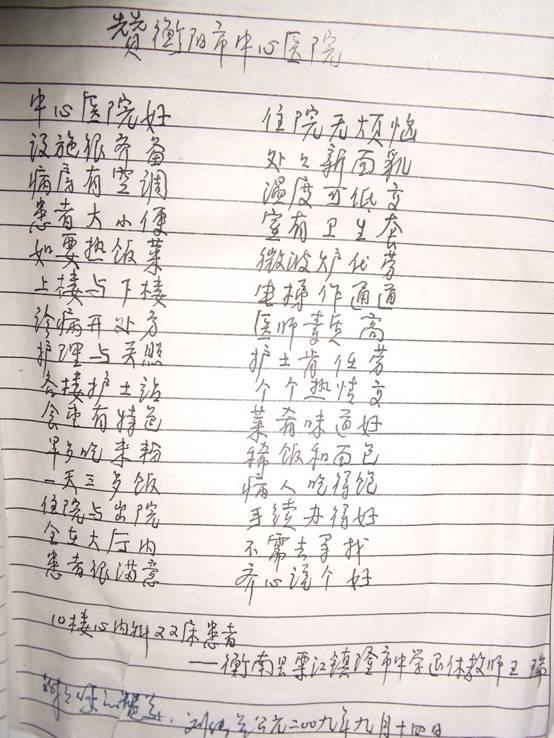 赞衡阳市中心医院
中心医院好 住院无烦恼
设施很齐备 处处新面貌
病房有空调 温度可低高
患者大小便 室有卫生套
如要热饭菜 微波炉代劳
上楼与下楼 电梯作通道
诊病开处方 医师素质高
护理与关照 护士肯任劳
各楼护士站 个个热情交
食堂有特色 菜肴味道好
早多吃米粉 稀饭和面包
一天三多饭 病人吃得饱
住院与出院 手续办得好
全在大厅内 不需去寻找
患者很满意 齐心说个好
10楼心内科22床患者
——衡南县栗江镇隆市中学退休教师王瑞
公元二00九年九月十四日